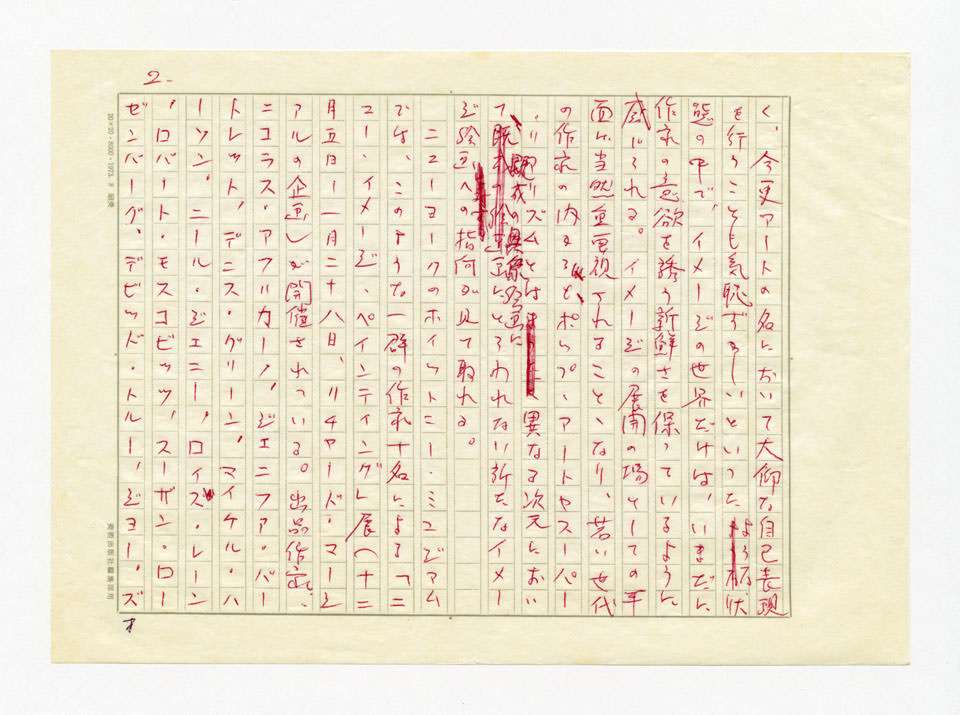 2.
く、今更アートの名において大仰な自己表現
を行うことも気恥ずかしいといったような状
態の中で、イメージの世界だけは、いまだに
作家の意欲を誘う新鮮さを保っているように
感じられる。イメージの展開の場としての平
面は当然重要視されることゝなり、若い世代
の作家の内にも、ポップ・アートやスーパー
・リアリズムとは異なる次元におい
て、既成の具象絵画に
とらわれない新たなイメー
ジ絵画への指向が見て取れる。
ニューヨークのホイットニー・ミュジアム
では、このような一群の作家十名による「ニ
ュー・イメージ・ペインティング」展(十二
月五日〜一月二十八日、リチャード・マーシ
アルの企画)が開催されている。出品作家は、
ニコラス・アフリカーノ、ジェニファ・バー
トレット、デニス・グリーン、マイケル・ハ
ーソン、ニール・ジェニー、ロイス・レーン
、ロバート・モスコビッツ、スーザン・ロー
ゼンバーグ、デビッド・トルー、ジョー・ズ
20×20・8000・1973. 8 納